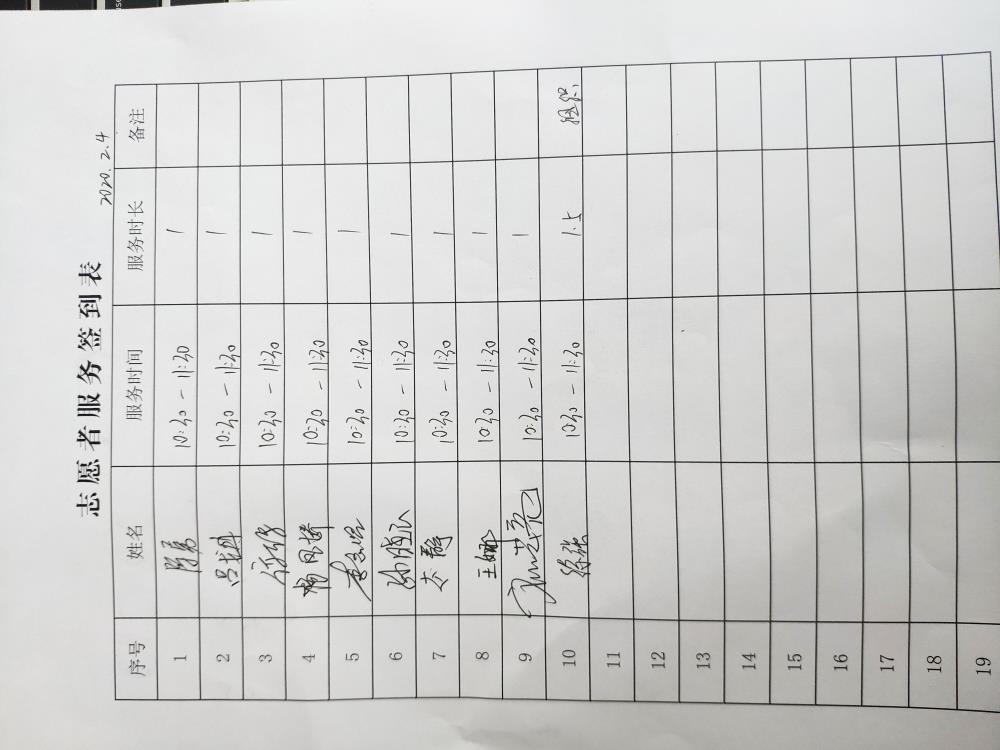 志愿者服务签到表
2020.2.4
序号 姓名 服务时间 服务时长 备注
1 10:30-11:30 1
2 10:30-11:30 1
3 10:30-11:30 1
4 杨凤娇 10:30-11:30 1
5 10:30-11:30 1
6 10:30-11:30 1
7 静 10:30-11:30 1
8 王娜 10:30-11:30 1
9 10:30-11:30 1
10 10:30-11:30 1.5 组织
11
12
13
14
15
16
17
18
19